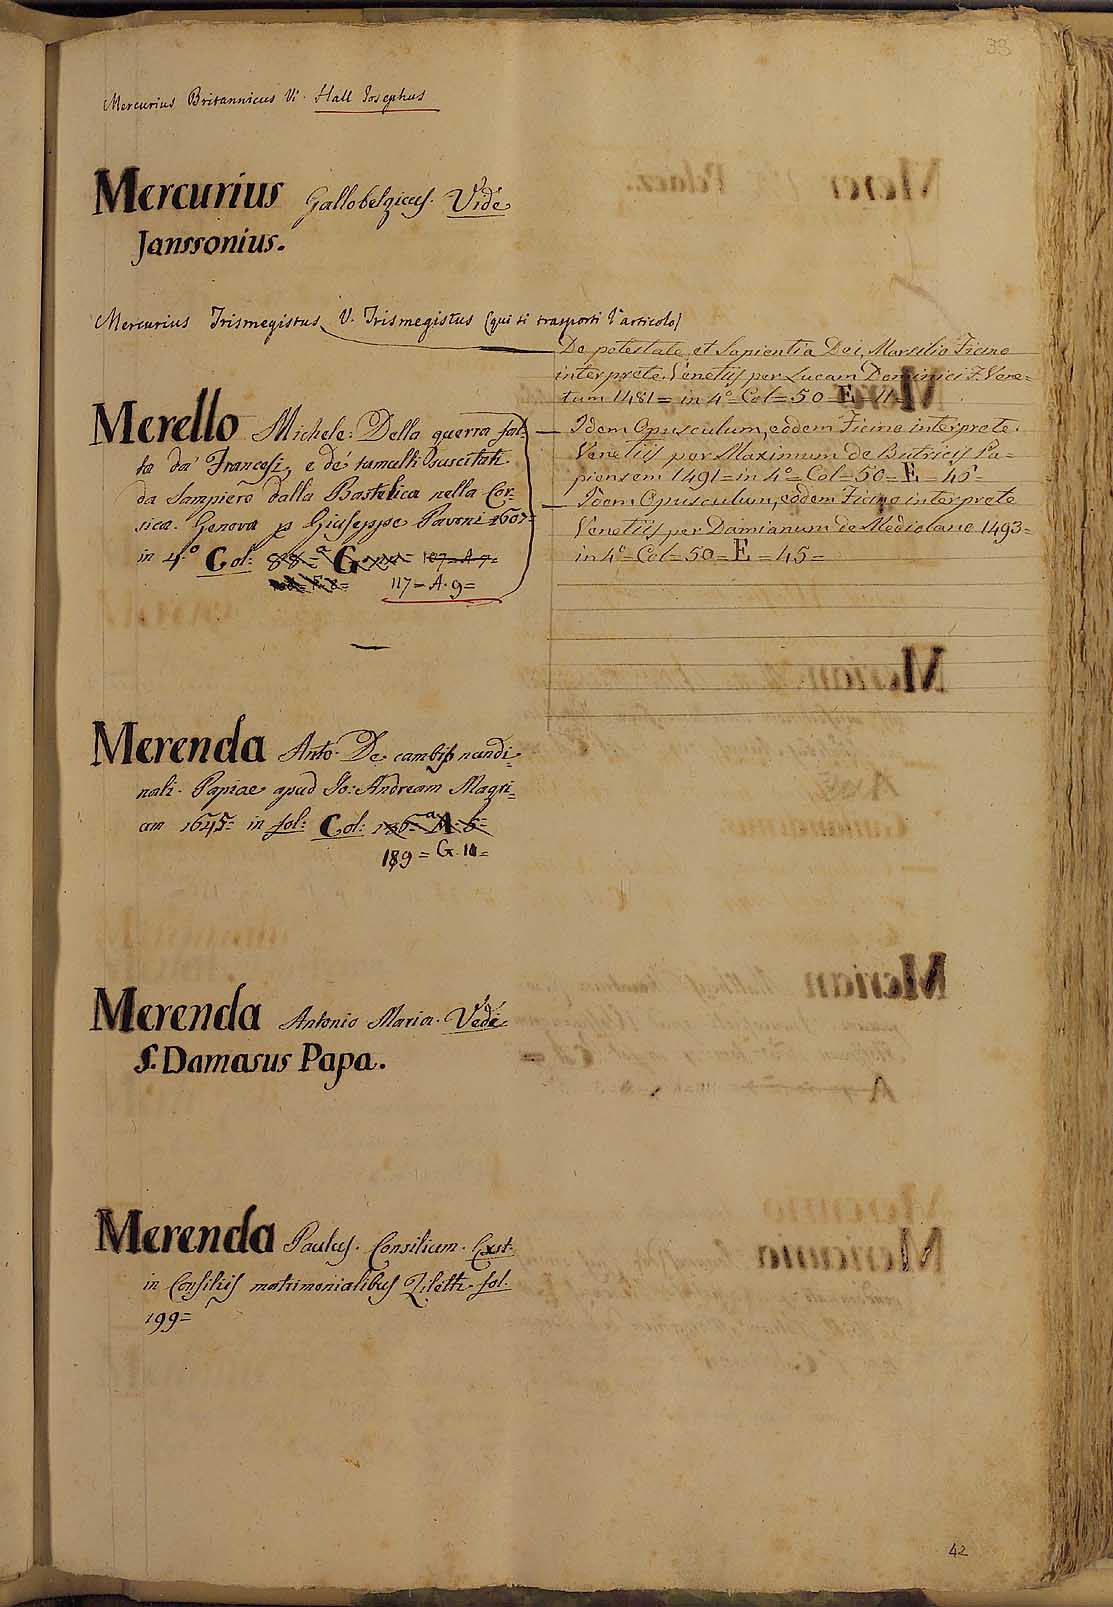 33
Mercurius Britannicus Vi. Hall Josephus
Mercurius Gallobelgicus. Vide
Janssonius.
Mercurius Trismegistus V. Trismegistus (qui si trasporti l'articolo)
De potestate et Sapientia Dei, Marsilio Ficino
interprete. Venetijs per Lucam Dominici F. Vene=
tum 1481= in 4º= Col= 50= E= 11=
— Idem Opusculum, eodem Ficino interprete.
Venetijs per Maximum de Butricis Pa=
piensem 1491= in 4º= Col= 50= E= 45=
— Idem Opusculum, eodem Ficino interprete
Venetijs per Damianum de Mediolano 1493=
in 4º= Col= 50= E= 45=
Merello Michele: Della guerra fat=
ta da' Francesi, e de' tumulti suscitati
da Sampiero dalla Bastelica nella Cor=
sica. Genova p Giuseppe Pavoni 1607=
in 4.º Col: 88=ª G 107= A 7=
117= A. 9=
Merenda Anto. De cambijs nundi=
nali. Papiae apud Jo: Andream Magri=
um 1645= in fol: Col: 136=ª A 6=
189= G. 10=
Merenda Antonio Maria. Vede
S. Damasus Papa.
Merenda Paulus. Consilium. Exst.
in Consilijs matrimonialibus Ziletti. fol.
199=
42